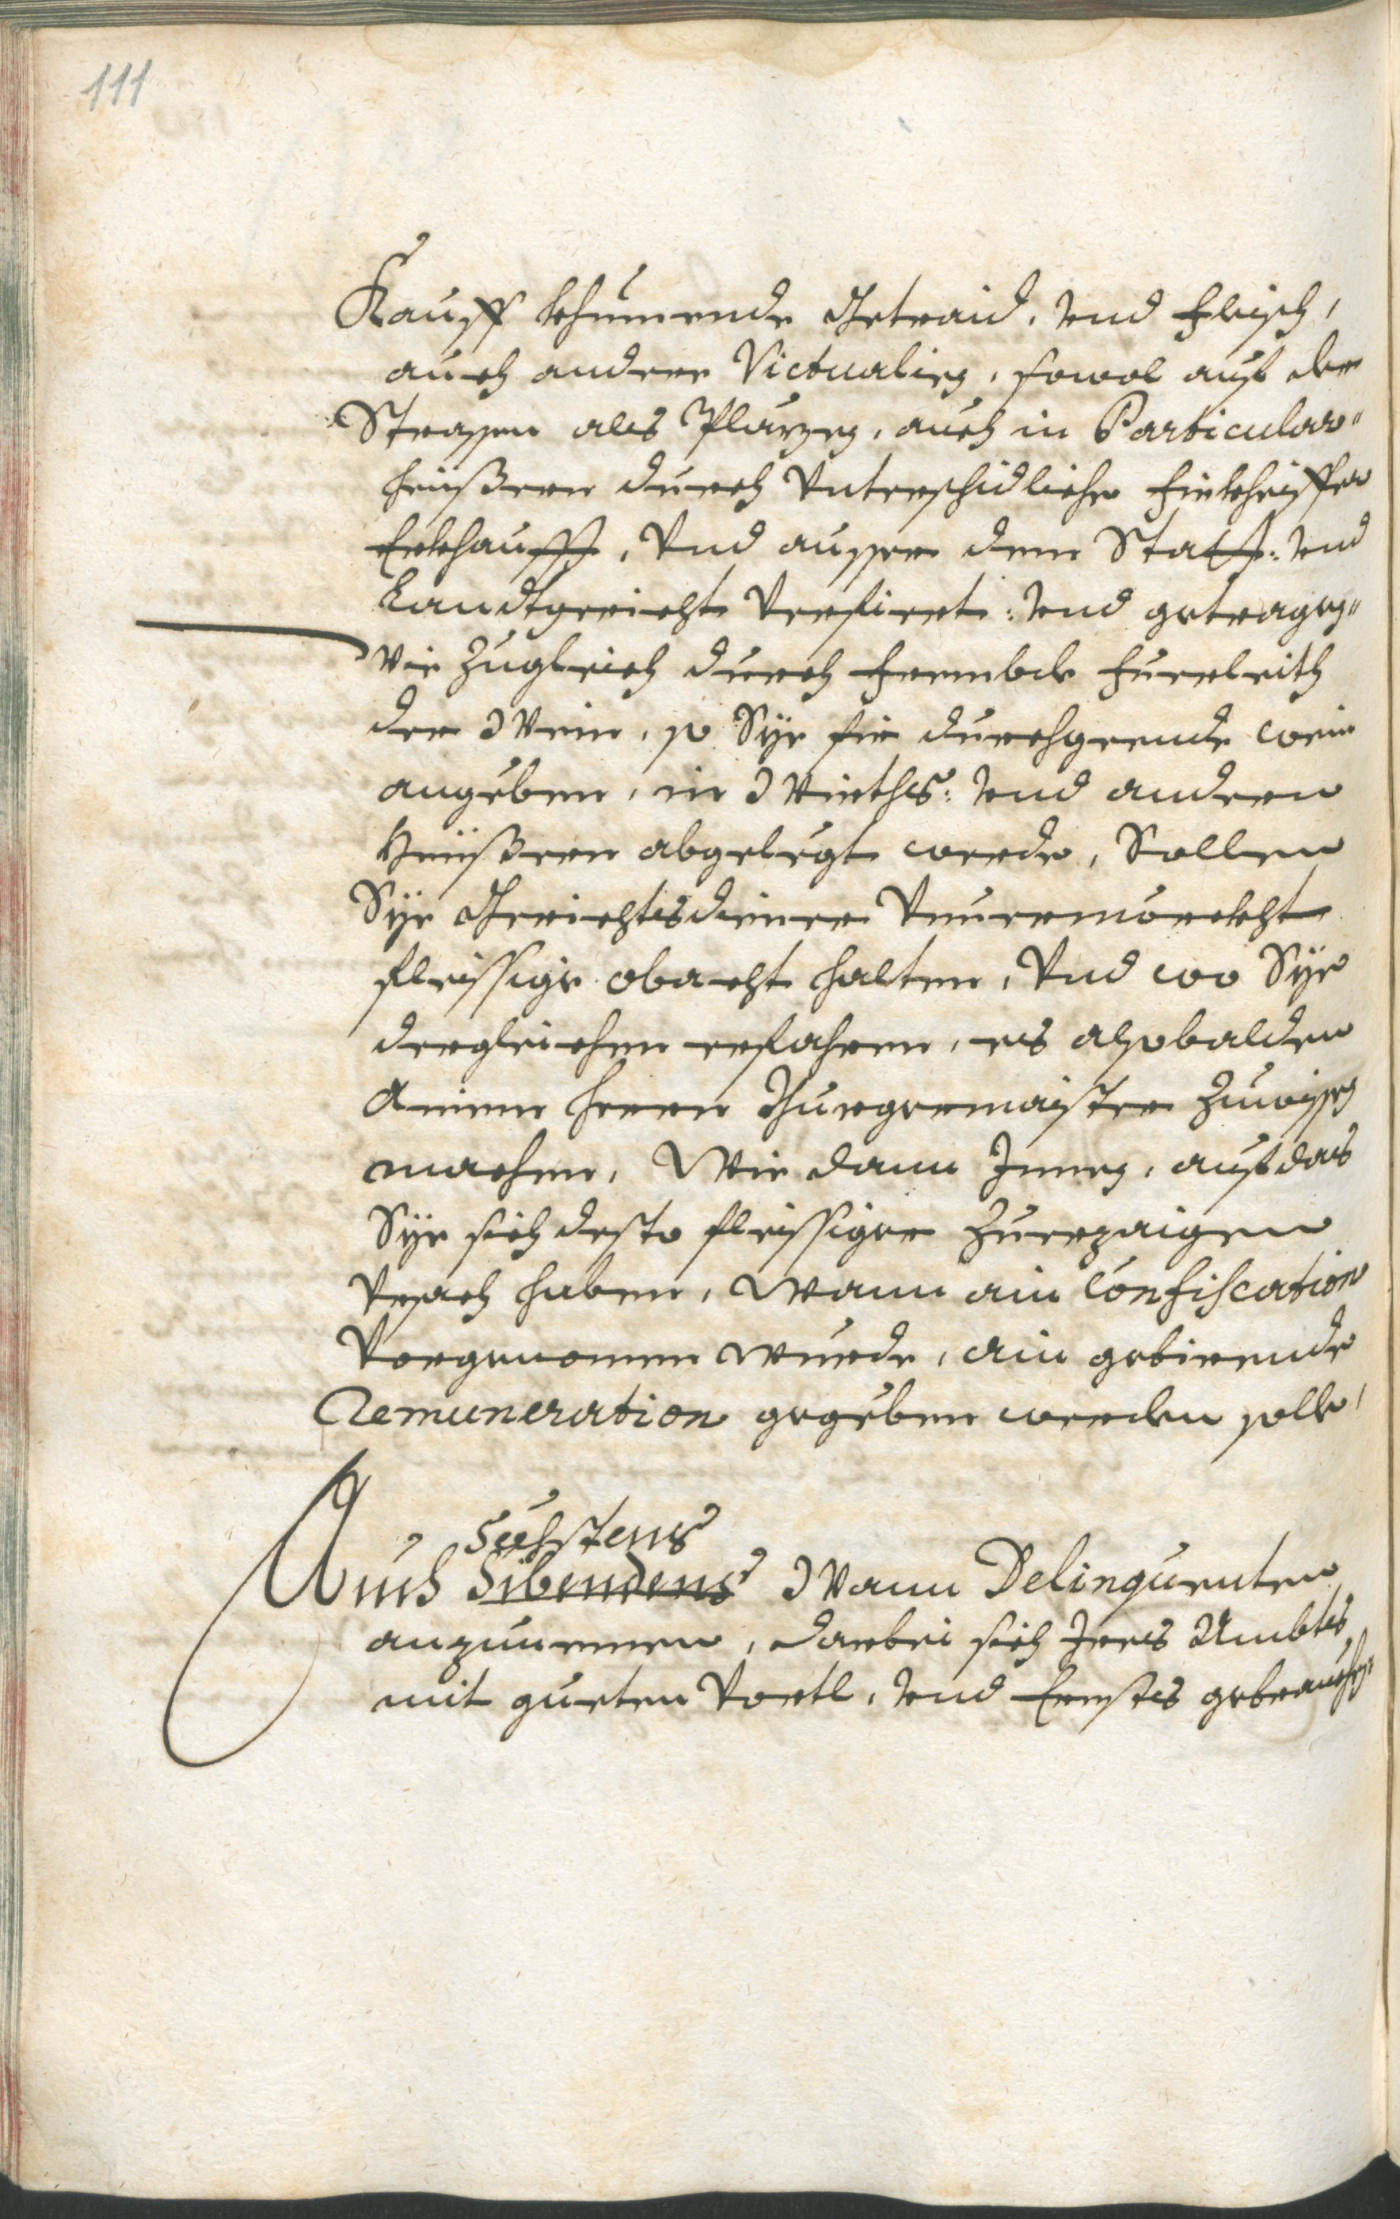 111
Kauff khumende Getraid, vnd Fleisch,
auch andere Victualien, sowol auf der
Strassen als Pläzen, auch in Particular-
heüßern durch Vnterschidliche Fürkheiffer
Erkhaufft, Vnd ausser dem Statt: vnd
Landtgericht Verfiert: vnd getragen,
wie zugleich durch frembde Fuerleith
der Wein, so Sÿe für durchgeende wein
angeben, in Wirths: vnd andern
Heüßern abgelegt werde, Sollen
Sÿe Gerichtsdiener Vnuermörckht
fleissige obacht halten, Vnd wo Sÿe
dergleichen erfahren, es alsobalden
Ainem Herrn Burgermaister zuwissen
machen, Wie dann Jnnen, auf das
Sÿe sich desto fleissiger zuerzaigen
Vrsach haben, Wann ain Confiscation
Vorgenomen wurde, ain gebirende
Remuneration gegeben werden solle,
Sechstens
Auch Sibendens Wann Delinquenten
anzunemen, darbei sich Jres Ambts
mit gueten Vortl, vnd Ernstes gebrauchen